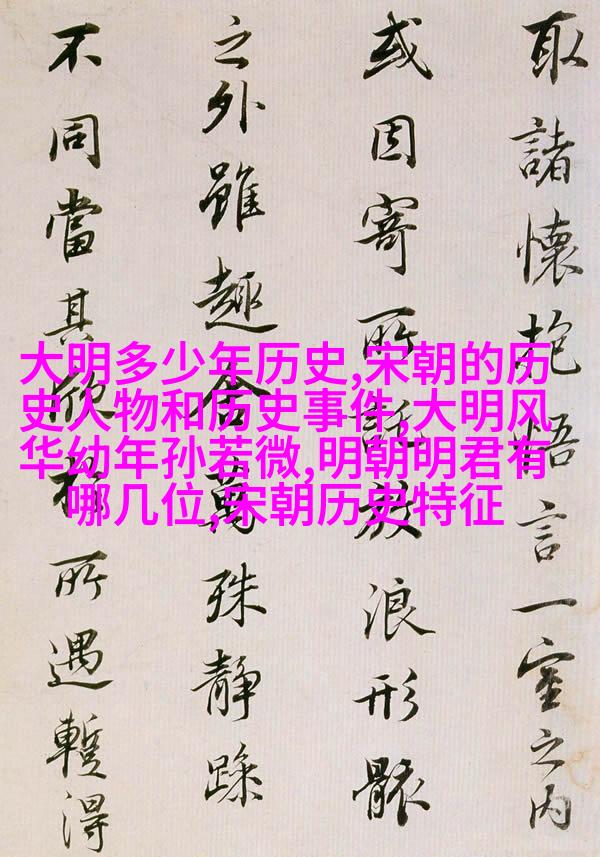 取諸懷抱悟言一室之内
或因寄所託放浪形骸
之外雖趣舍萬殊静躁
不同當其欣於所遇蹔得
大明多少年历史,宋朝的历
史人物和历史事件,大明风
华幼年孙若微,明朝明君有
哪几位,宋朝历史特征